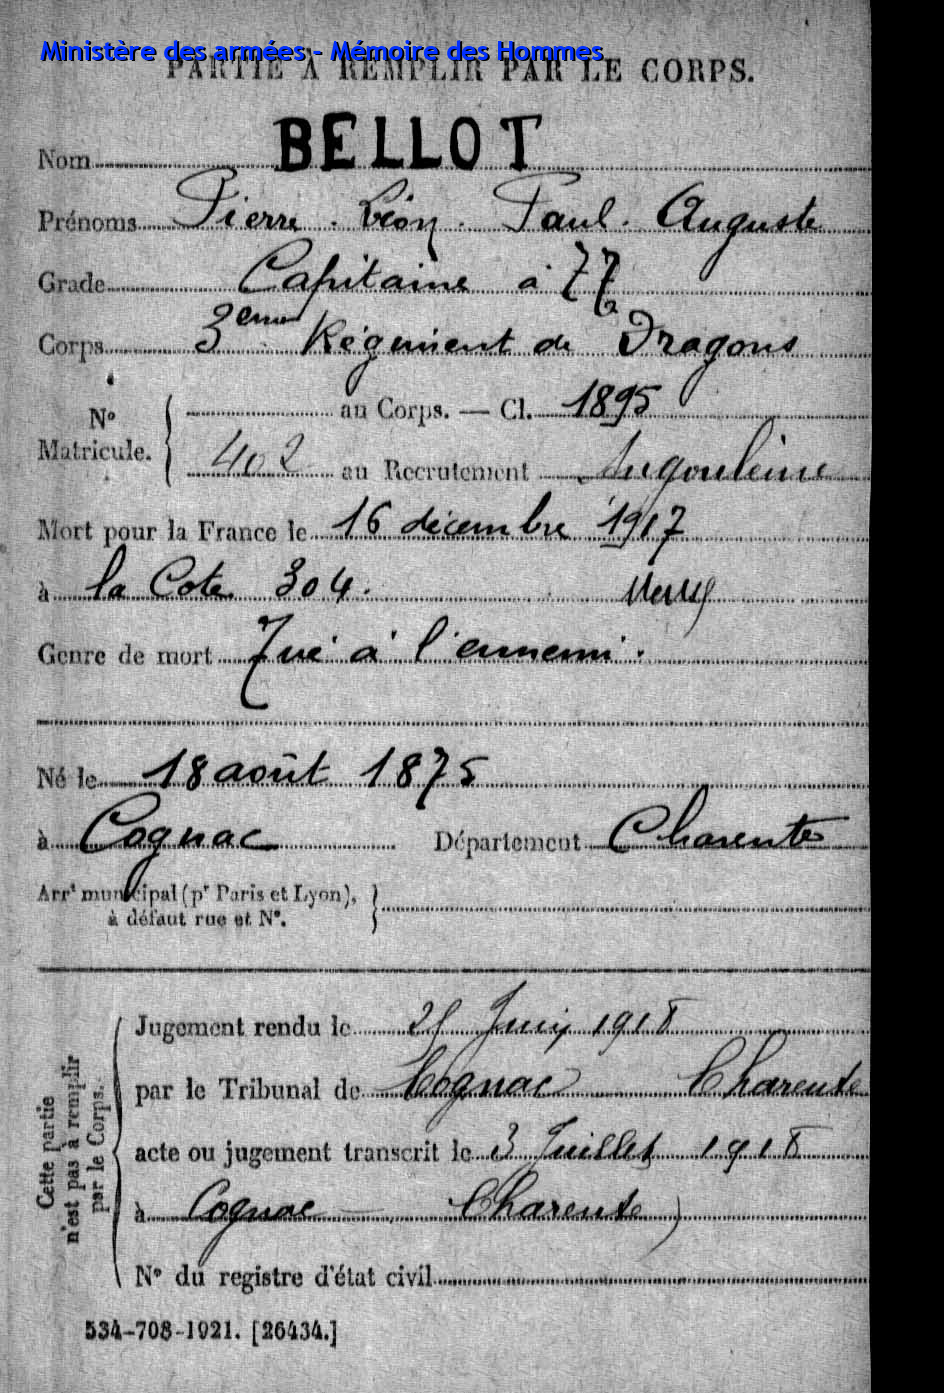 Ministère des armées - Mémoire des Hommes
PARTIE À REMPLIR PAR LE CORPS.
Nom BELLOT
Prénoms Pierre . Léon . Paul . Auguste
Grade Capitaine à TT
Corps 3eme Régiment de Dragons
No Matricule.
au Corps. — Cl. 1895
402 au Recrutement Angoulême
Mort pour la France le 16 décembre 1917
à la Cote 304. Meuse
Genre de mort Tué à l'ennemi.
Né le 18 août 1875
à Cognac Département Charente
Arrt municipal (pr Paris et Lyon),
à défaut rue et N°.
Cette partie
n'est pas à remplir
par le Corps.
Jugement rendu le Juin 1918
par le Tribunal de Cognac Charente
acte ou jugement transcrit le 3 Juillet 1918
à Cognac — Charente)
N° du registre d'état civil
534-708-1921. [26434.]